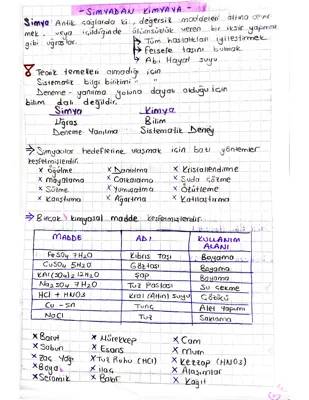 - SİMYADAN KİMYAYA -
Simya Antik çağlarda ki, değersiz maddeleri altına çevir
mek, veya içildiğinde ölümsüzlük veren bir iksir yapmak
gibi uğraşlar.
→ Tüm hastalıkları iyileştirmek
→ Felsefe taşını bulmak
→ Abı Hayat suyu
Teorik temelleri olmadığı için
Sistematik bilgi birikimi " "
Deneme - yanılma yoluna dayalı olduğu için
bilim dalı değildir.
Simya Kimya
Uğraş Bilim
Deneme Yanılma Sistematik Deney
→ Simyacılar hedeflerine ulaşmak için bazı yöntemler
keşfetmişlerdir.
x Öğütme x Damıtma x Kristallendirme
x Mayalama x Suda çözme
x Süzme x Yumuşatma
x Karıştırma x Ağartma x Katılaştırma
→ Birçok kimyasal madde keşfetmişlerdir
MADDE ADI KULLANIM ALANI
FeSO4 7H2O Kıbrıs Taşı Boyama
CuSO4 5H2O Göztaşı Boyama
KAl(SO4)2 12H2O Şap Boyama
Na2SO4 7H2O Tuz Pastası Su çekme
HCl + HNO3 Kral (Altın) Suyu Çözücü
Cu - Sn Tunç Alet Yapımı
NaCl Tuz Saklama
x Barut x Mürekkep x Cam
x Sabun x Esans x Mum
x Zaç Yağı x Tuz Ruhu (HCl) x Kezzap (HNO3)
x Boya x İlaç x Alaşımlar
x Seramik x Bakır x Kağıt